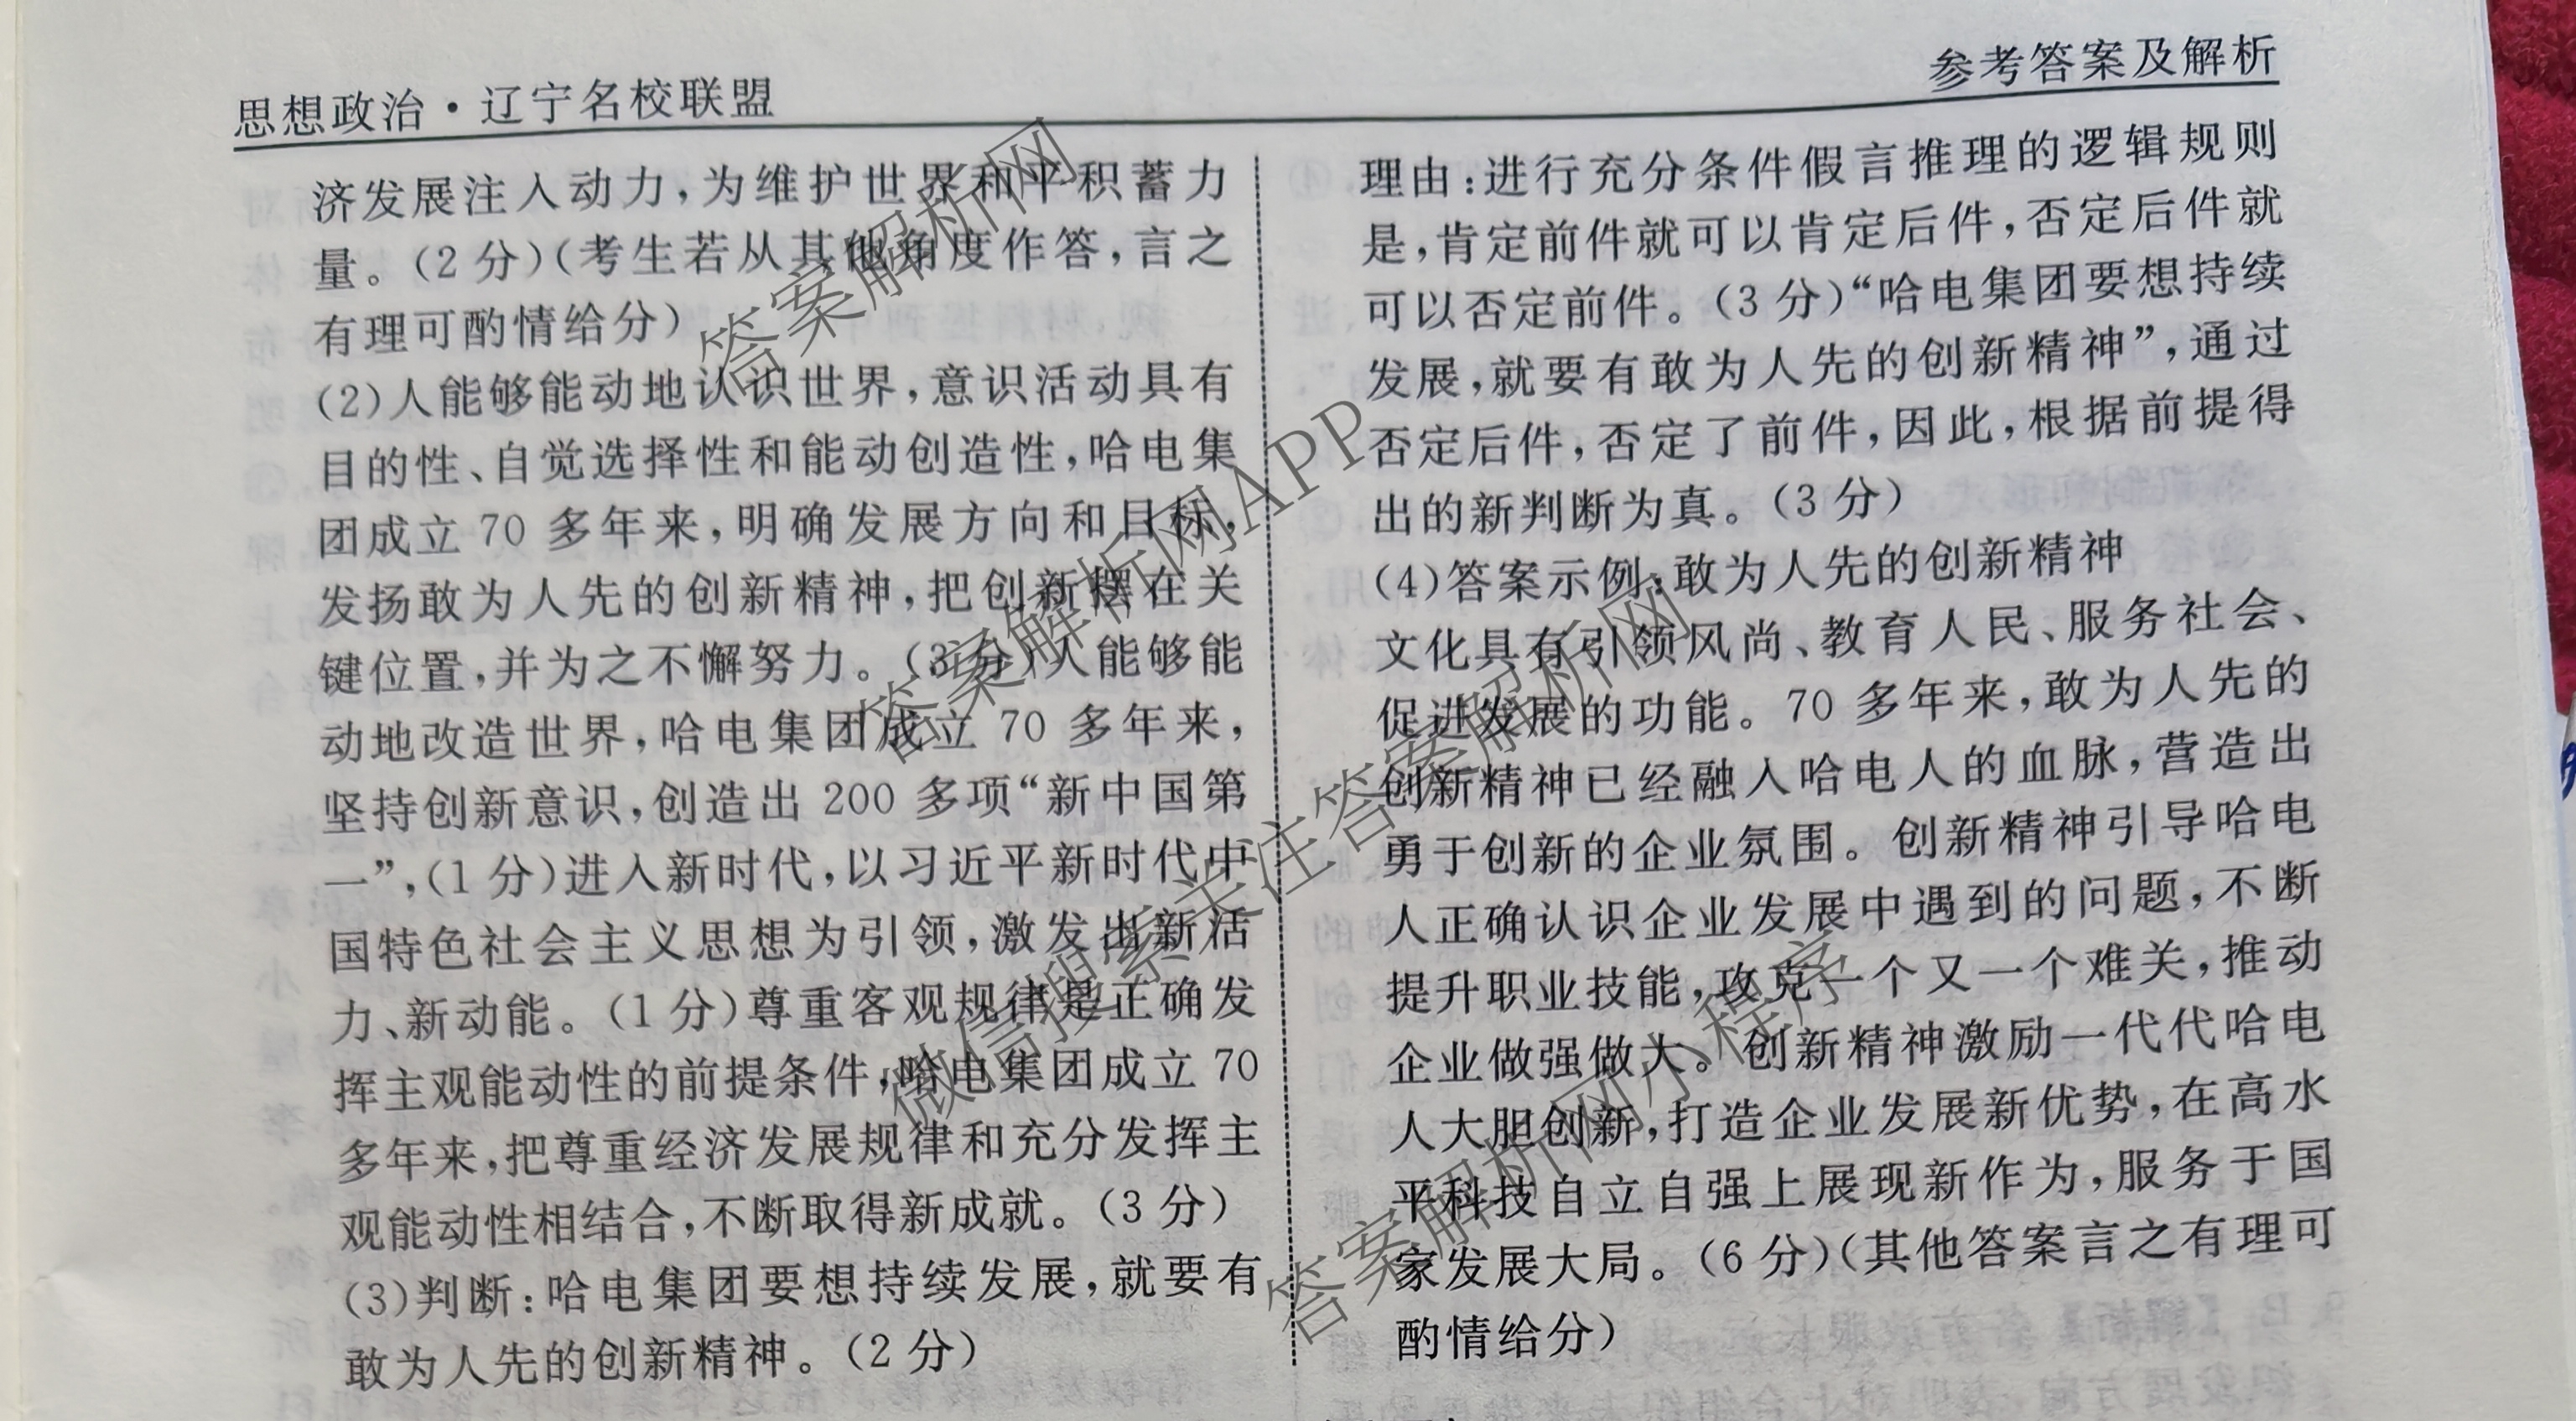 思想政治·辽宁名校联盟
参考答案及解析
济发展注入动力,为维护世界和平积蓄力
量。(2分)(考生若从其他角度作答,言之
有理可酌情给分)
(2)人能够能动地认识世界,意识活动具有
目的性、自觉选择性和能动创造性,哈电集
团成立70多年来,明确发展方向和目标,
发扬敢为人先的创新精神,把创新摆在关
键位置,并为之不懈努力。(3分)人能够能
动地改造世界,哈电集团成立70多年来,
坚持创新意识,创造出200多项“新中国第
一”,(1分)进入新时代,以习近平新时代中
国特色社会主义思想为引领,激发出新活
力、新动能。(1分)尊重客观规律是正确发
挥主观能动性的前提条件,哈电集团成立70
多年来,把尊重经济发展规律和充分发挥主
观能动性相结合,不断取得新成就。(3分)
(3)判断:哈电集团要想持续发展,就要有
敢为人先的创新精神。(2分)
理由:进行充分条件假言推理的逻辑规则
是,肯定前件就可以肯定后件,否定后件就
可以否定前件。(3分)“哈电集团要想持续
发展,就要有敢为人先的创新精神”,通过
否定后件,否定了前件,因此,根据前提得
出的新判断为真。(3分)
(4)答案示例:敢为人先的创新精神
文化具有引领风尚、教育人民、服务社会、
促进发展的功能。70多年来,敢为人先的
创新精神已经融入哈电人的血脉,营造出
勇于创新的企业氛围。创新精神引导哈电
人正确认识企业发展中遇到的问题,不断
提升职业技能,攻克一个又一个难关,推动
企业做强做大。创新精神激励一代代哈电
人大胆创新,打造企业发展新优势,在高水
平科技自立自强上展现新作为,服务于国
家发展大局。(6分)(其他答案言之有理可
酌情给分)
答案解析网
答案解析网APP
微信搜索关注答案解析网
答案解析网小程序